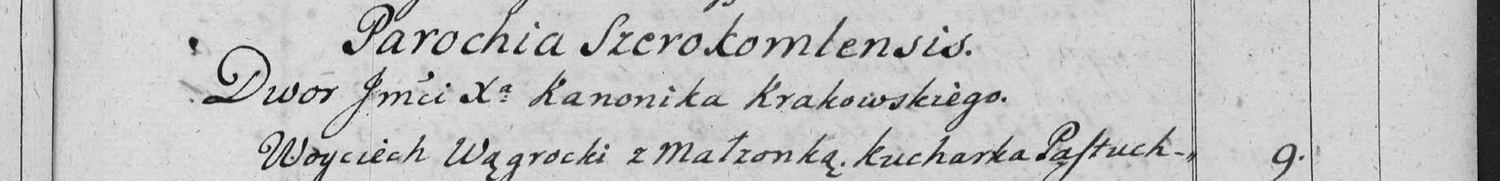 Parochia Szerokomlensis.
Dwor Jmći Xa Kanonika Krakowskiego.
Woyciech Wągrocki z Małzonką. Kucharka Pąſtuch-,, 9.